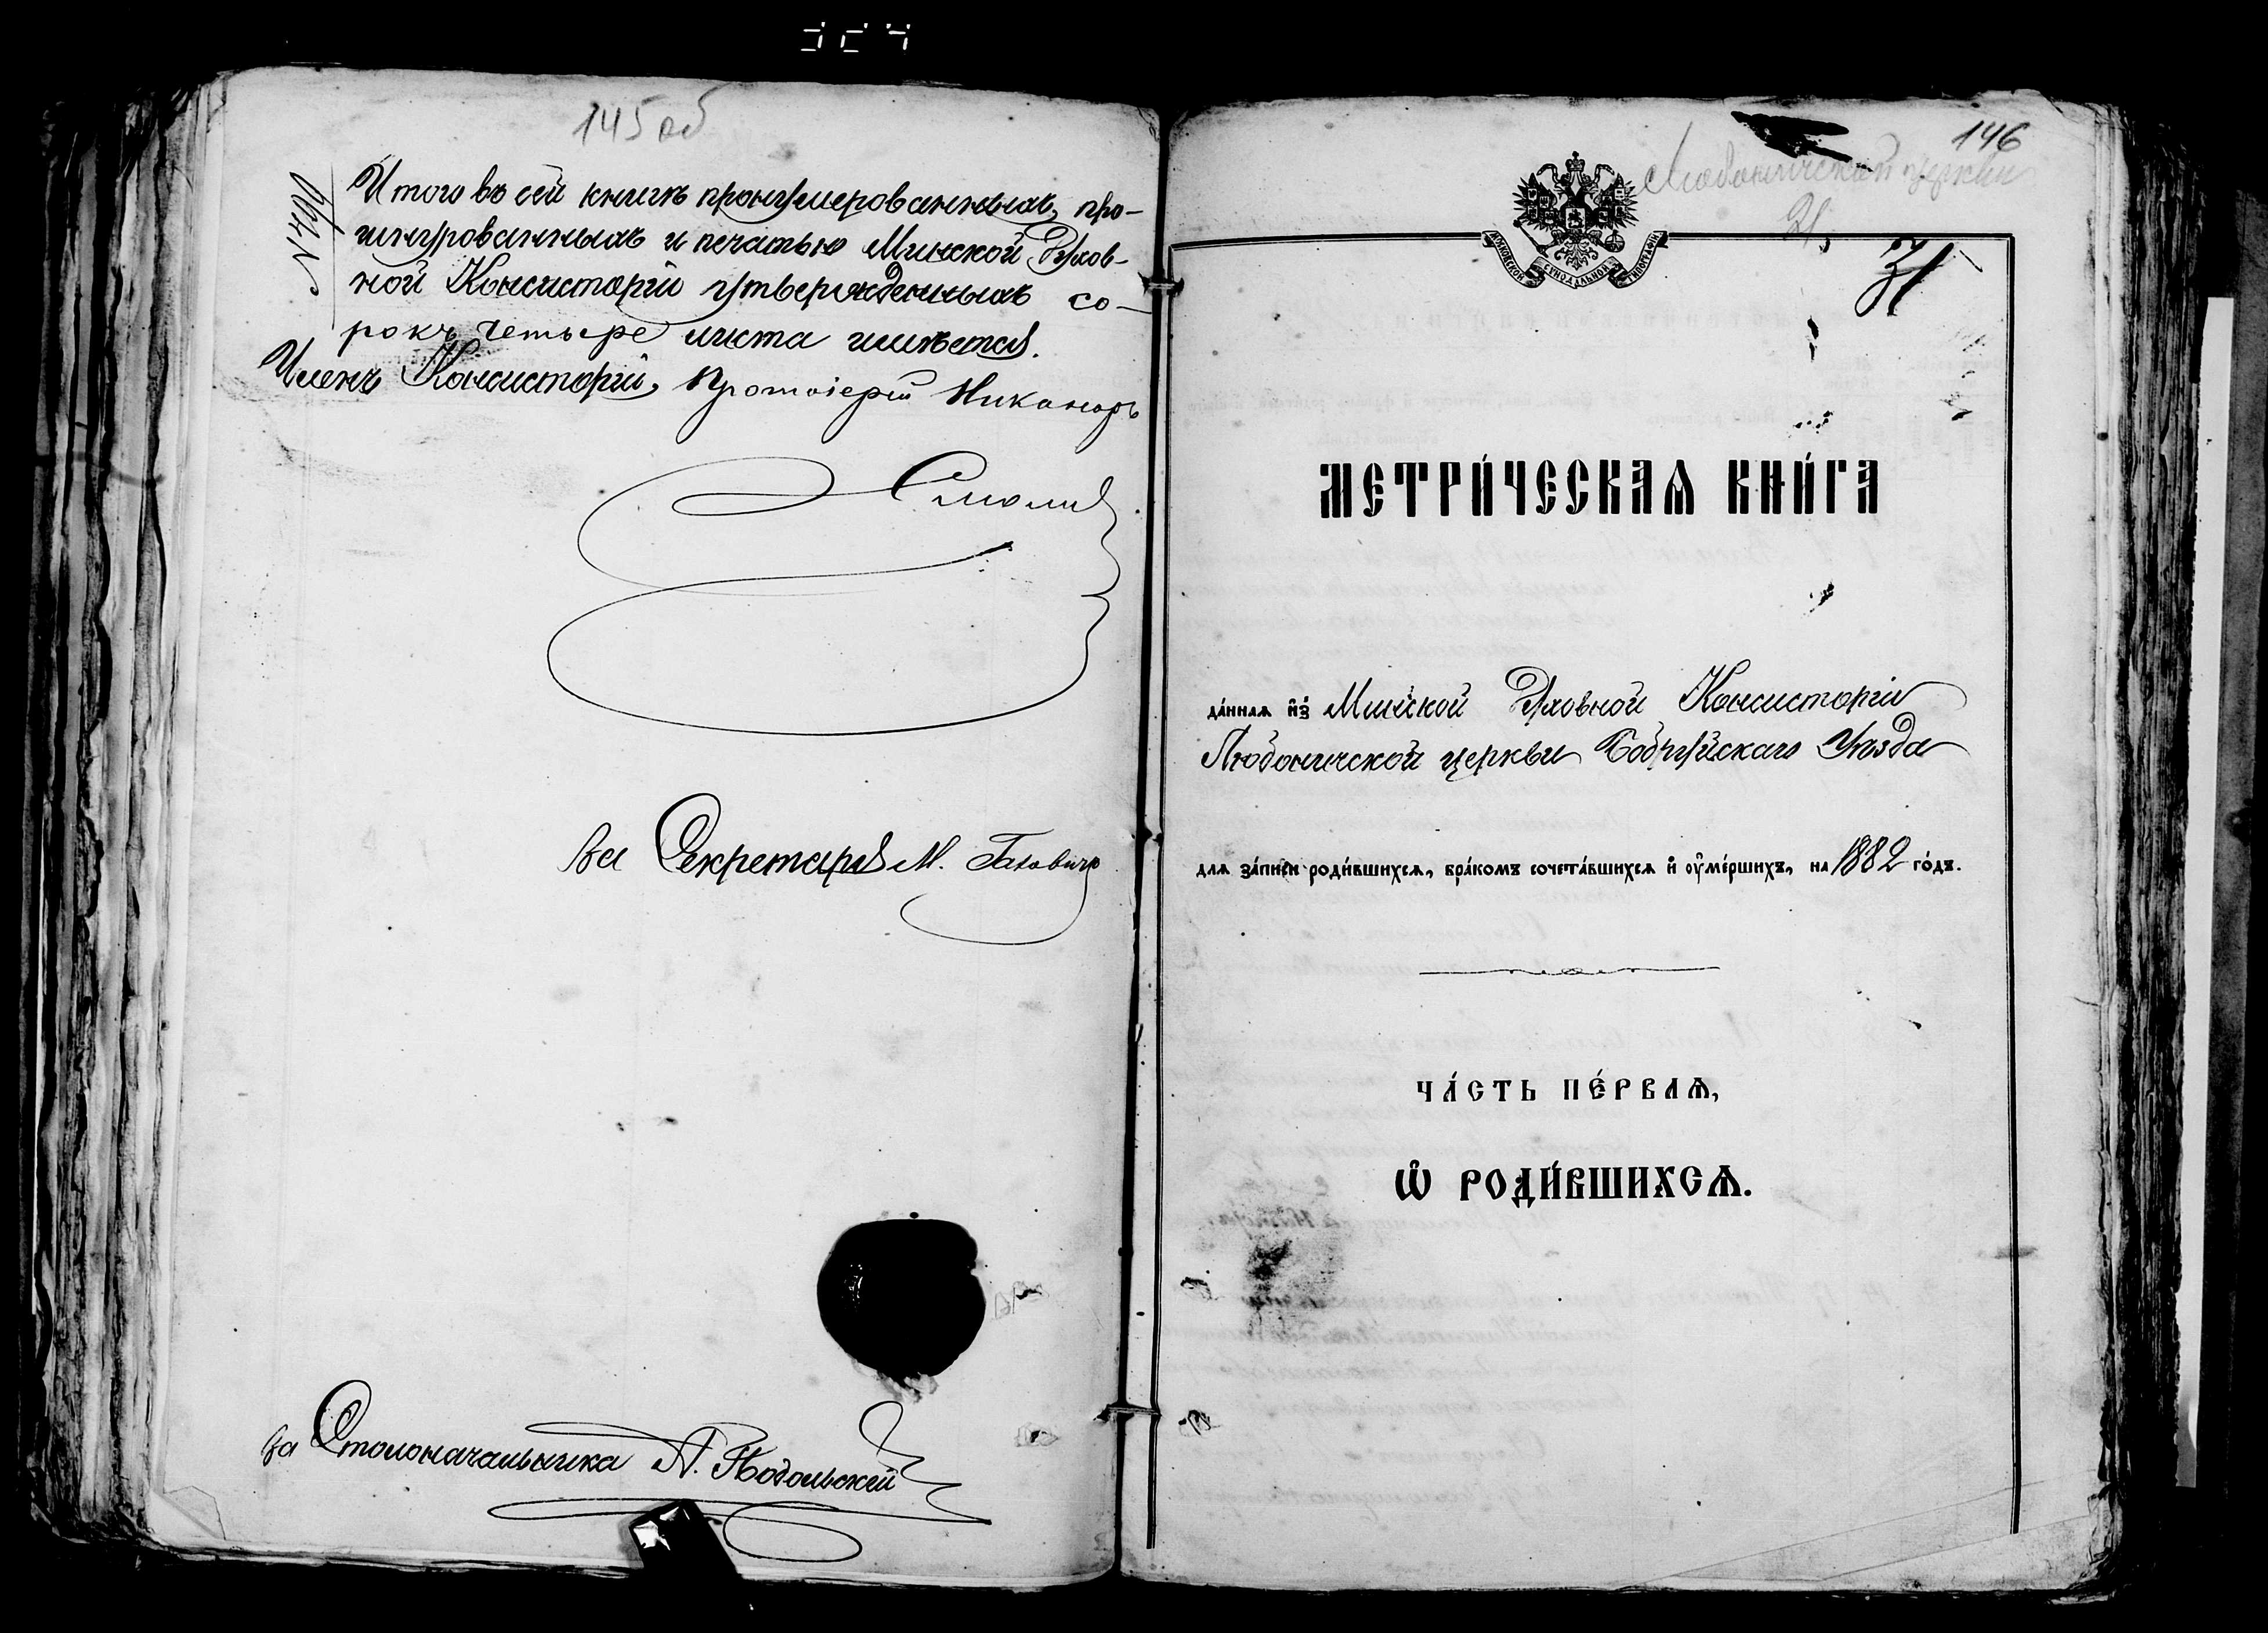 145 об
Итого въ сей книгѣ пронумерованныхъ, про-
шнурованныхъ и печатью Минской Духов-
ной Консисторіи утвержденныхъ со-
рокъ четыре листа имѣется.
Членъ Консисторіи, Протоіерей Никаноръ
Смолич
За Секретаря М.
За Столоначальника А. Подольскій
146
Любоничской церкви
21
31
МОСКОВСКОЙ СѴНОДАЛЬНОЙ ТИПОГРАФІИ
МЕТРИ́ЧЕСКАѦ КНИ́ГА
да́ннаѧ и҆з̾ Минской Духовной Консисторіи
Любоничской церкви Бобруйскаго Уѣзда
длѧ за́писи роди́вшихсѧ, бра́комъ сочета́вшихсѧ и҆ ᲂу҆ме́ршихъ, на 1882 го́дъ.
ЧА́СТЬ ПЕ́РВАѦ,
Ѡ҆ РОДИ́ВШИХСѦ.